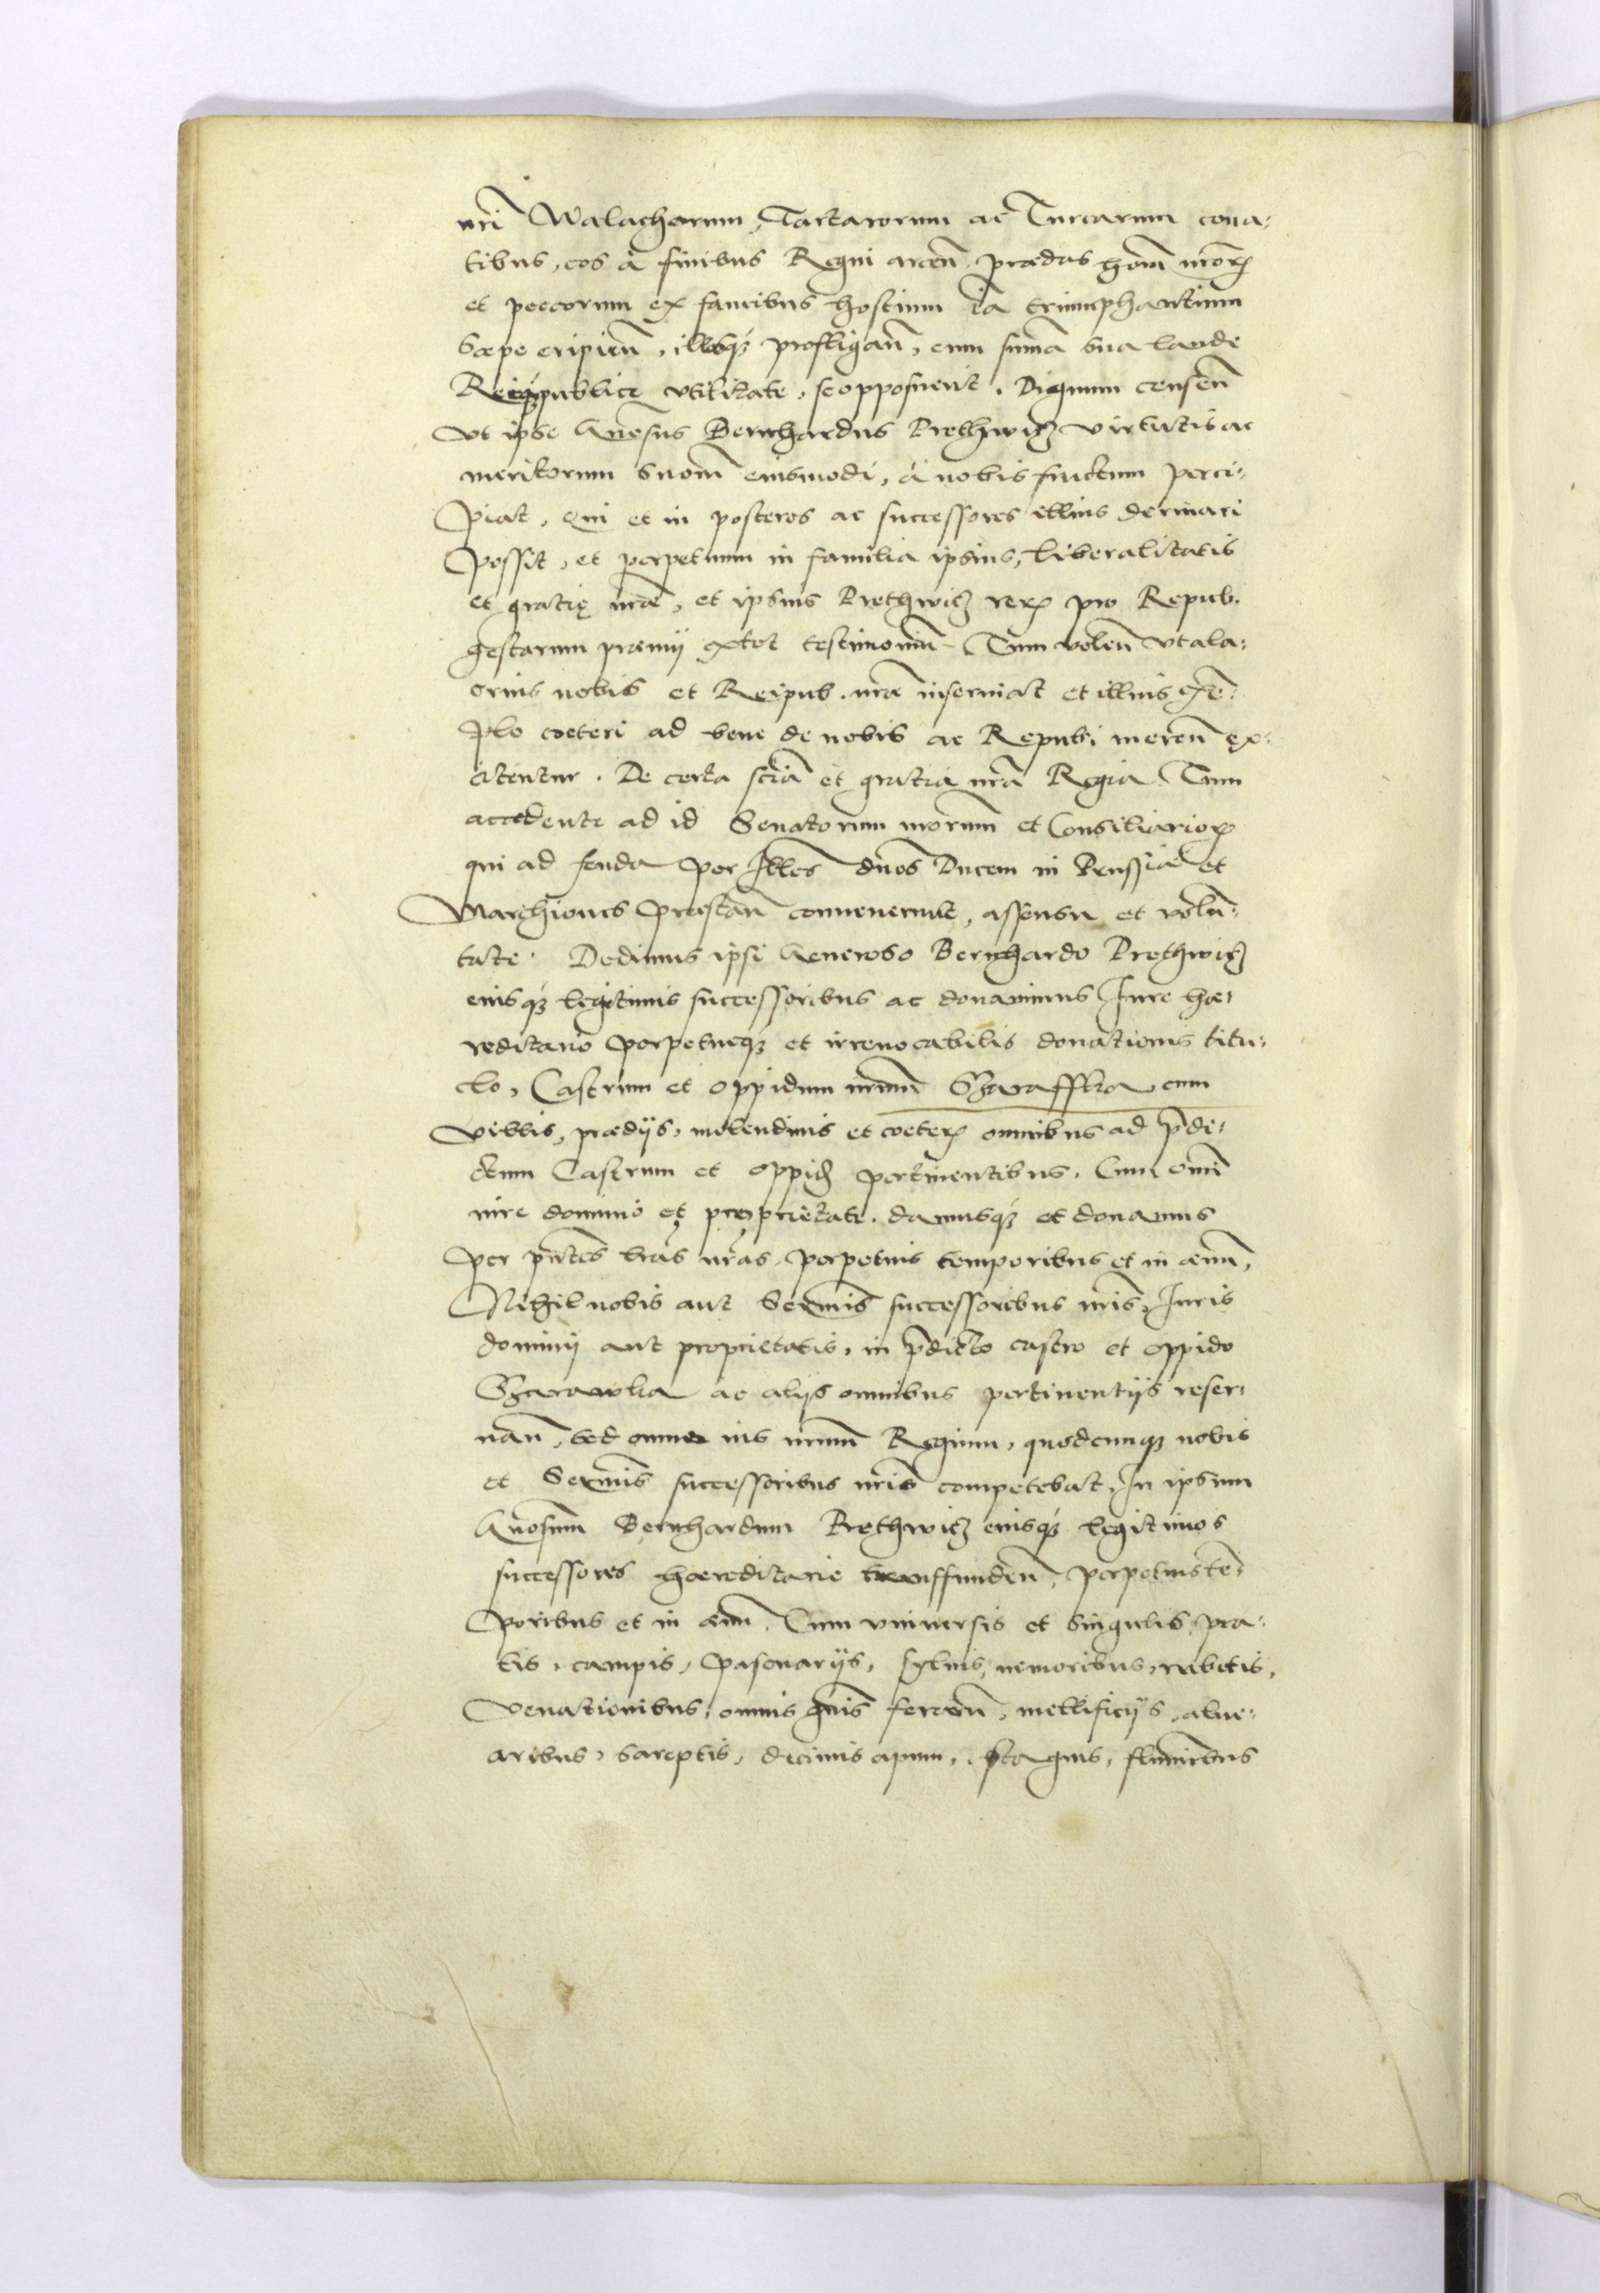 nri Walachorum, Tartarorum ac Turcarum cona-
tibus, eos à finibus Regni arcen prædas hom nror
et pecorum ex faucibus hostium ia triumphantium
sæpe eripien, illosq profligan, cum suma sua laude
Reiq publice vtilitate, se opposuerit. Dignum censen
vt ipse Gnosus Bernhardus Prethwicz virtutis ac
meritorum suom eiusmodi, à nobis fructum perci-
piat, qui et in posteros ac successores illius deriuari
possit, et perpetuum in familia ipsius, liberalitatis
et gratię nræ, et ipsius Prethwicz rerum pro Repub.
gestarum præmij extet testimonium. Tum volen vt ala-
crius nobis et Reipub. nræ inseruiat et illius exe-
plo cæteri ad bene de nobis ac Repub. meren ex-
citentur. De certa scia et gratia nra Regia Tum
accedente ad id Senatorum nrorum et Consiliarior
qui ad feuda per Illes dnos Ducem in Prussia et
Marchiones præstan conuenerunt, assensu et volun-
tate. Dedimus ipsi Generoso Bernhardo Prethwicz
eiusq legitimis successoribus ac donauimus Jure hæ-
reditario perpetueq et irreuocabilis donationis titu-
lo, Castrum et oppidum nrum Szarafffka cum
villis, prædijs, molendinis et cæter omnibus ad pdi-
ctum Castrum et oppid pertinentibus. Cum omi
iure dominio et proprietate. damusq et donamus
per pntes lras nras perpetuis temporibus et in æuum,
Nihil nobis aut Sermis successoribus nris, Juris
dominij aut proprietatis, in pdicto castro et oppido
Szarawka ac alijs omnibus pertinentijs reser-
uan, sed omne ius nrum Regium, quodcunq nobis
et Sermis successoribus nris competebat, In ipsum
Gnosum Bernhardum Prethwicz eiusq legitimos
successores hæreditarie transffunden, perpetuis te-
poribus et in æuum. Cum vniuersis et singulis pra-
tis, campis, pascuarijs, syluis, nemoribus, rubetis,
Venationibus, omnis gnis ferarum, mellificijs, alue-
aribus, sareptis, decimis apum, stagnis, fluminibus